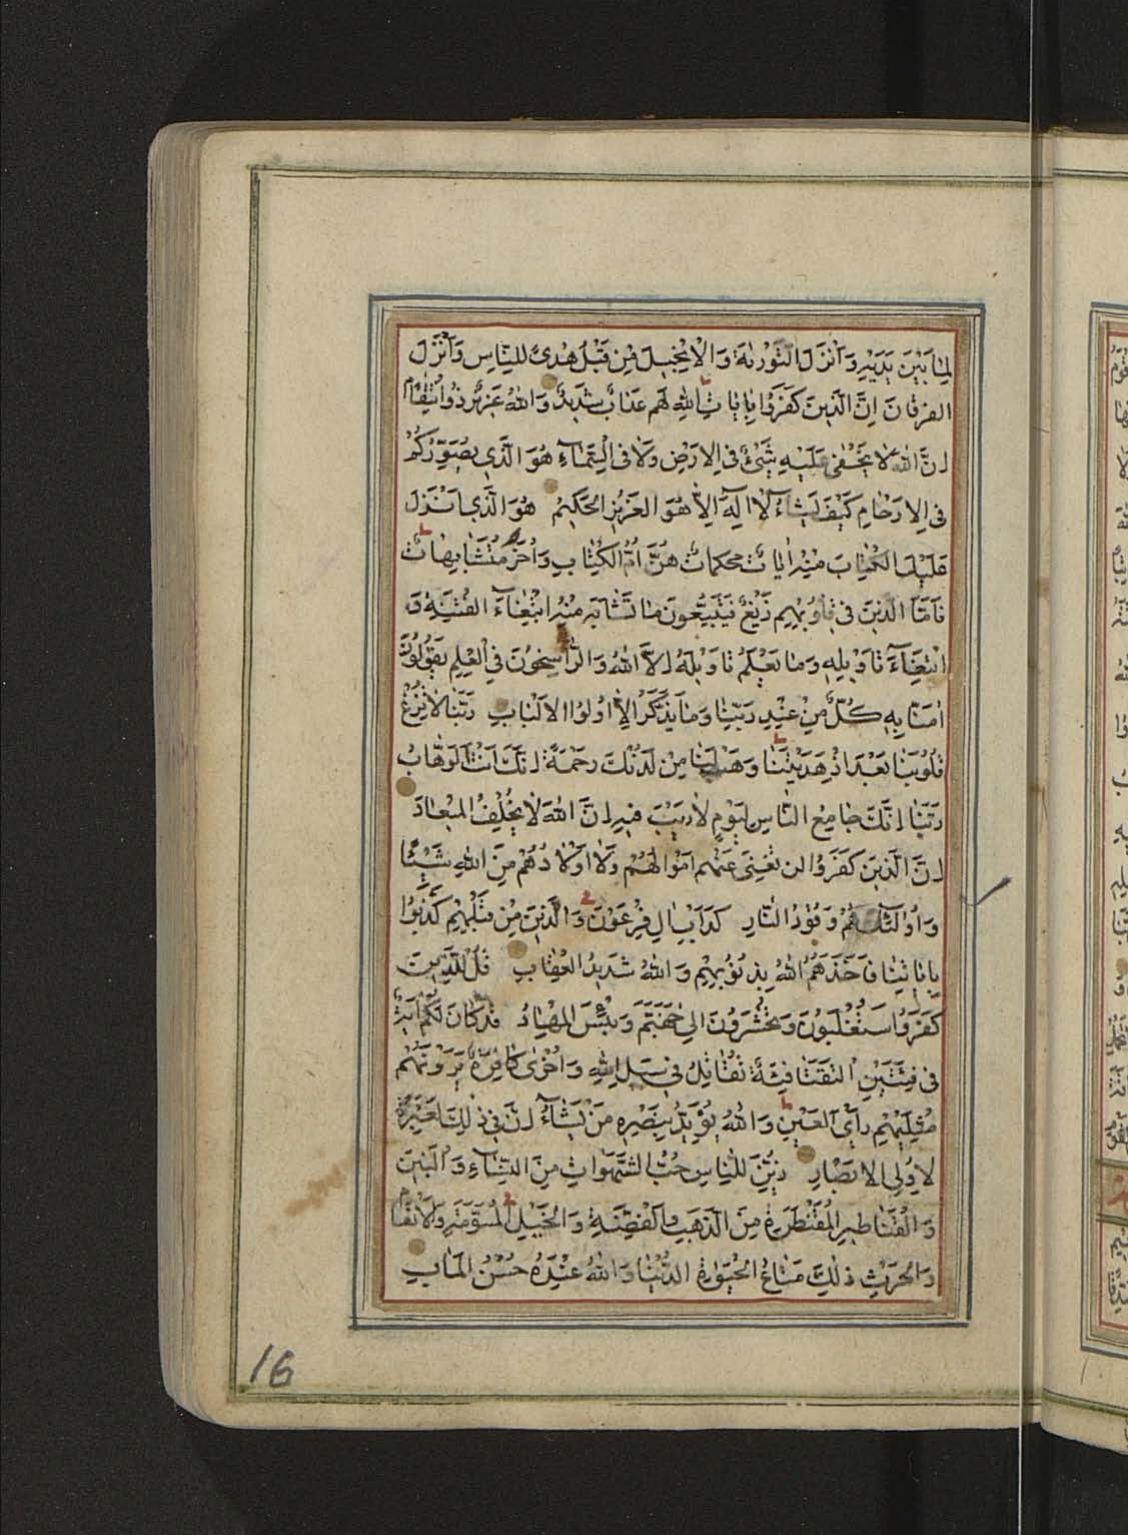 لِمَا بَيْنَ يَدَيْهِ وَاَنْزَلَ التَّوْرٰيةَ وَالْاِنْجِيلَ مِنْ قَبْلُ هُدىً لِلنَّاسِ وَاَنْزَلَ
الفرقانَ اِنَّ الَّذِينَ كَفَرُوا بِاٰيَاتِ اللهِ لَهُم عَذَابٌ شَدِيدٌ وَاللهُ عَزِيزٌ ذُوانْتِقَام
اِنَّ اللهَ لَا يَخْفٰى عَلَيْهِ شَيْءٌ فى الِارْضِ وَلَا فى الْسَّمَاءِ هُوَ الَّذِي يُصَوِّرُكُمْ
فى الِارْحَامِ كَيْفَ يَشَاءُ لَا اِلٰهَ اِلَّا هُوَ العَزِيزُ الحَكِيمُ هُوَ الَّذِي اَنْزَلَ
عَلَيْكَ الكِتَابَ مِنْهُ اٰيَاتٌ محكماتٌ هُنَّ اُمُّ الكِتَابِ وَاُخَرُ مُتَشَابِهَاتٌ
فَاَمَّا الَّذِينَ فى قُلُوبِهِم زَيْغٌ فَيَتَّبِعُونَ مَا تَشَابَهَ مِنْهُ ابْتِغَاءَ الفِتْنَةِ وَ
ابْتِغَاءَ تَاْوِيلِهِ وَمَا يَعْلَمُ تَاوِيلَهُ اِلَّا اللهُ وَالرَّاسِخُونَ فِي الْعِلْمِ يَقُولُونَ
اٰمَنَّا بِهِ كُلٌّ مِنْ عِنْدِ رَبِّنَا وَمَا يَذَّكَّرُ اِلَّا اُولُوا الالْبَابِ رَبَّنَا لَا تُزِغْ
قُلُوبَنَا بَعْدَ اِذْ هَدَيْتَنَا وَهَبْ لَنَا مِنْ لَدُنْكَ رَحْمَةً اِنَّكَ اَنْتَ الوَهَّابُ
رَبَّنَا اِنَّكَ جَامِعُ النَّاسِ لِيَوْمٍ لَا رَيْبَ فِيهِ اِنَّ اللهَ لَا يُخْلِفُ المِيعَادَ
اِنَّ الَّذِينَ كَفَرُوا لن تُغْنِيَ عَنْهُم اَمْوَالُهُمْ وَلَا اَوْلَادُهُمْ مِنَ اللهِ شَيْئًا
وَاُولٰئِكَ هُمْ وَقُودُ النَّارِ كَدَاْبِ اٰلِ فِرْعَوْنَ وَالَّذِينَ مِنْ قَبْلِهِمْ كَذَّبُوا
بِاٰيَاتِنَا فَاَخَذَهُمُ اللهُ بِذُنُوبِهِمْ وَاللهُ شَدِيدُ العِقَابِ قُلْ لِلَّذِينَ
كَفَرُوا سَتُغْلَبُونَ وَتُحْشَرُونَ اِلىٰ جَهَنَّمَ وَبِئْسَ المِهَادُ قَدْ كَانَ لَكُمْ اٰيَةٌ
فى فِئَتَيْنِ الْتَقَتَا فِئَةٌ تُقَاتِلُ فى سَبِيلِ اللهِ وَاُخْرٰى كَافِرَةٌ يَرَوْنَهُمْ
مِثْلَيْهِمْ رَاْىَ العَيْنِ وَاللهُ يُؤَيِّدُ بِنَصْرِهِ مَنْ يَشَاءُ اِنَّ فى ذٰلِكَ لَعِبْرَةً
لِاُولِى الابْصَارِ زُيِّنَ لِلنَّاسِ حُبُّ الشَّهَوَاتِ مِنَ النِّسَاءِ وَالْبَنِينَ
وَالْقَنَاطِيرِ المُقَنْطَرَةِ مِنَ الذَّهَبِ وَالْفِضَّةِ وَالخَيْلِ الْمُسَوَّمَةِ وَالْاَنْعَامِ
وَالحَرْثِ ذٰلِكَ مَتَاعُ الحَيٰوةِ الدُّنْيَا وَاللهُ عِنْدَهُ حُسْنُ المَاٰبِ
16